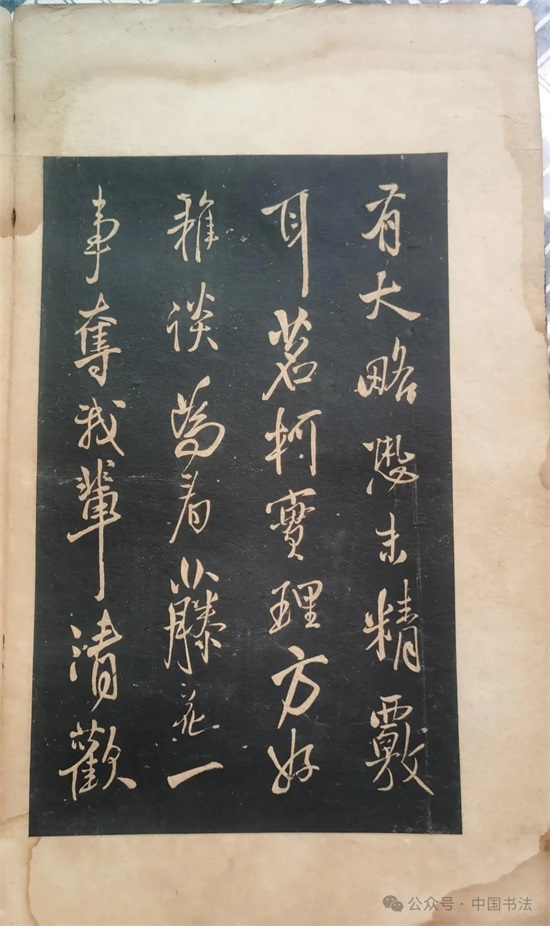 有大略未精覈
耳茗柯實理方好
雅談為看小藤花一
事奪我輩清歡
公众号·中国书法